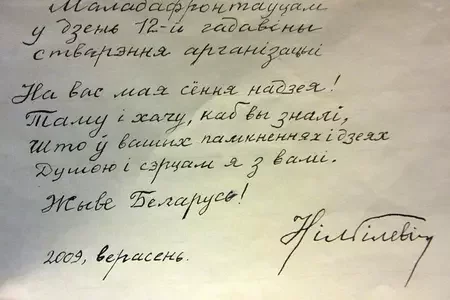 Маладафронтаўцам
у дзень 12-й гадавіны
стварэння арганізацыі
На вас мая сёння надзея!
Таму і хачу, каб вы зналі,
Што ў вашых памкненнях і дзеях
Душою і сэрцам я з вамі.
Жыве Беларусь!
Ніл Гілевіч
2009, верасень.